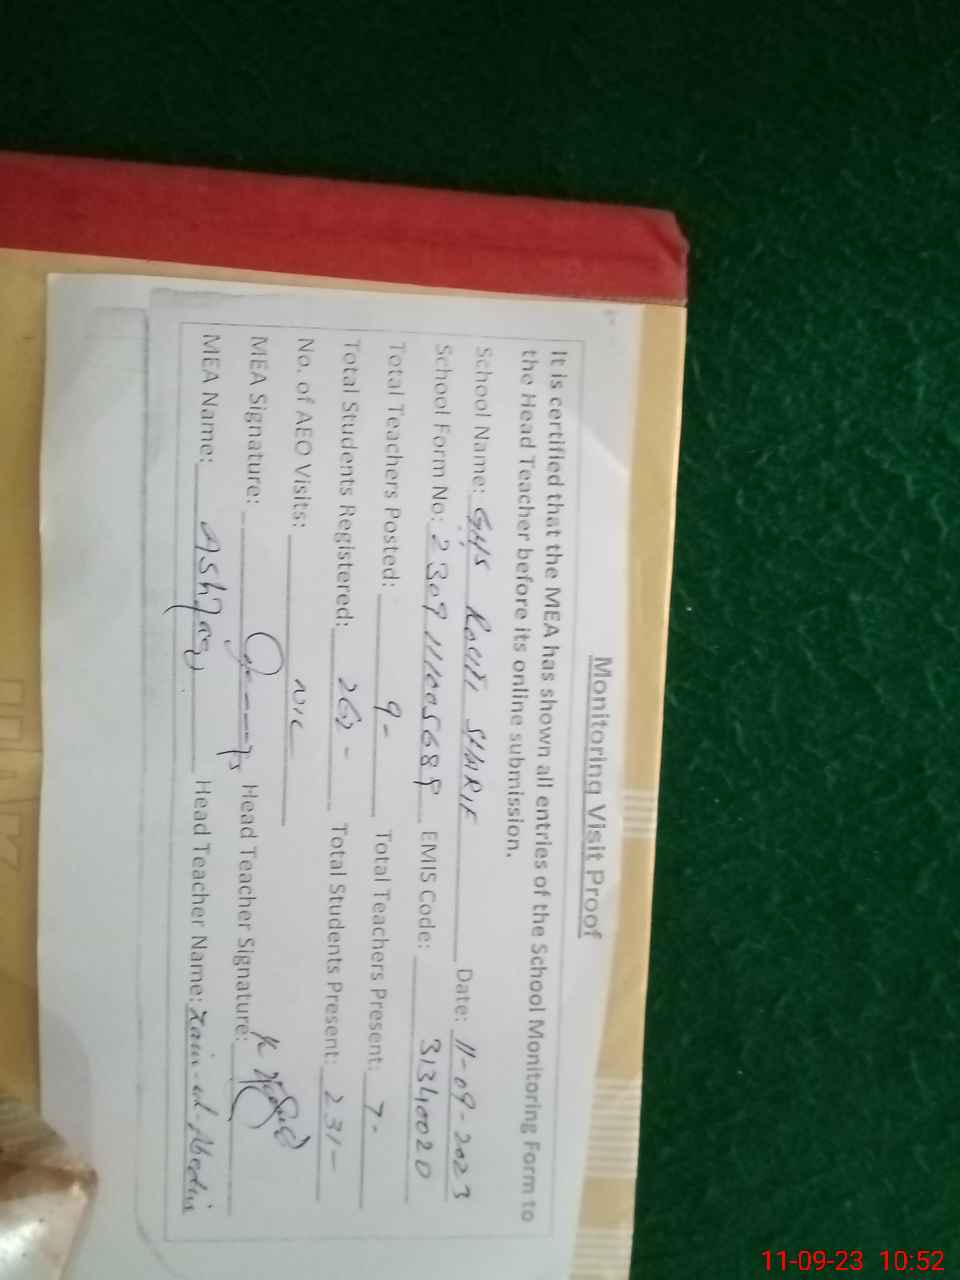 Monitoring Visit Proof
It is certified that the MEA has shown all entries of the School Monitoring Form to
the Head Teacher before its online submission.
School Name: GHS SHARIF Date: 11-09-2023
School Form No: 2309 EMIS Code: 31340020
Total Teachers Posted: 9- Total Teachers Present: 7-
Total Students Registered: Total Students Present: 231-
No. of AEO Visits: NIL
MEA Signature: Head Teacher Signature:
MEA Name: Ashfaq Head Teacher Name: Zain-ul-Abedin
11-09-23 10:52